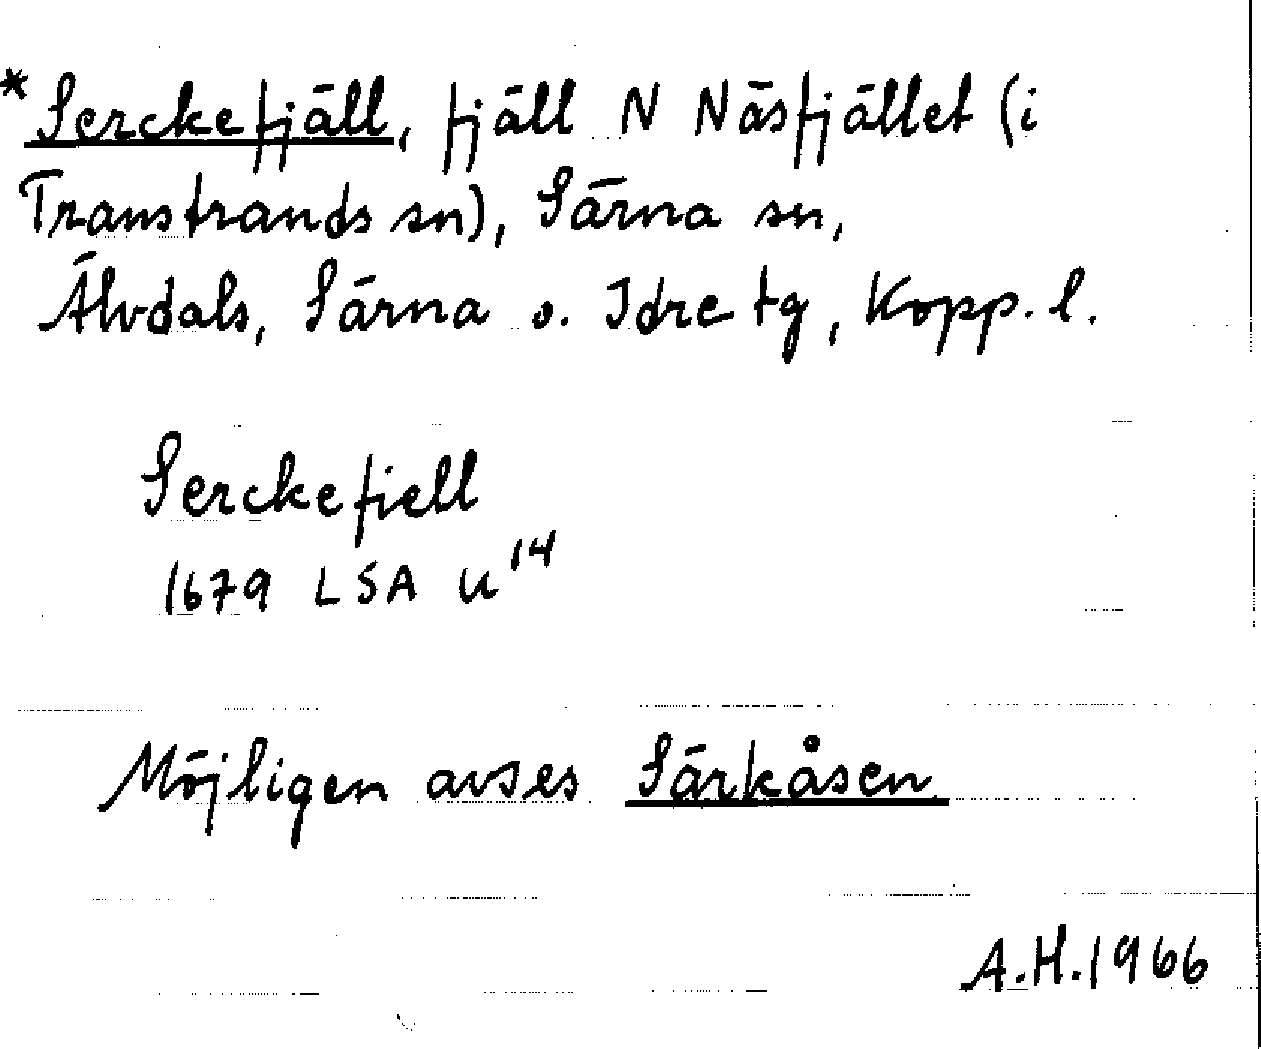 *Serckefjäll, fjäll N Näsfjället (i
Transtrands sn), Särna sn,
Älvdals, Särna o. Idre tg, Kopp. l.
Serckefiell
1679 LSA U¹⁴
Möjligen avses Särkåsen
A.H. 1966